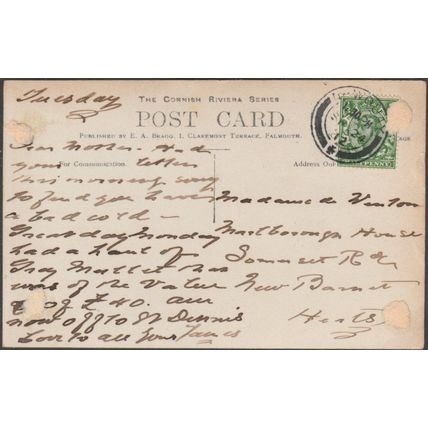 Tuesday
THE CORNISH RIVIERA SERIES
POST CARD
PUBLISHED BY E. A. BRAGG, 1, CLAREMONT TERRACE, FALMOUTH.
Dear Mother. Had
For Communication.
Address Only
your letter
this morning sorry
to find you have
a bad cold —
yesterday Monday
had a haul of
Grey Mullet
was of the Value
of £40. am
now off to St Dennis
Love to all Your James
Madame de Ventom
Marlborough House
Somerset Rd
New Barnet
Herts